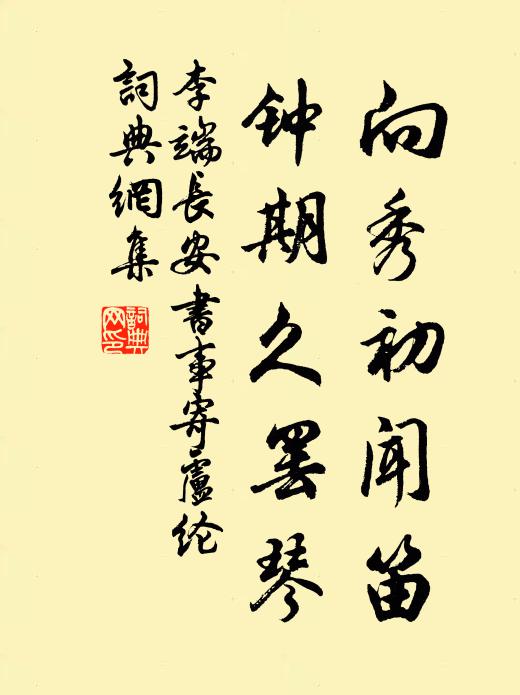 向秀初闻笛
钟期久罢琴
李端長安書事寄盧纶
詞典網集
詞典网印